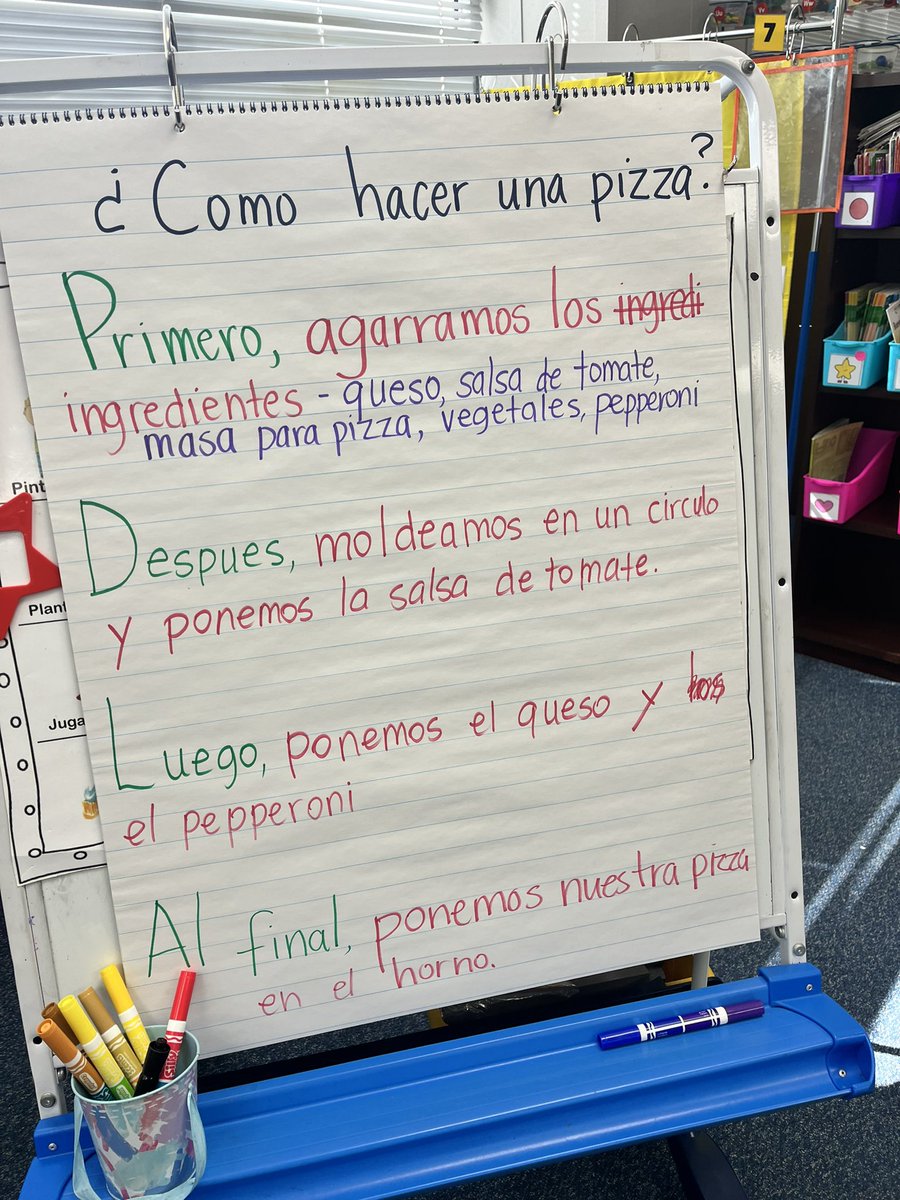 7
¿Como hacer una pizza?
Primero, agarramos los ingredi
ingredientes - queso, salsa de tomate,
masa para pizza, vegetales, pepperoni
Despues, moldeamos en un circulo
y ponemos la salsa de tomate.
Luego, ponemos el queso y los
el pepperoni
Al final, ponemos nuestra pizza
en el horno.
Pint
Plant
Juga